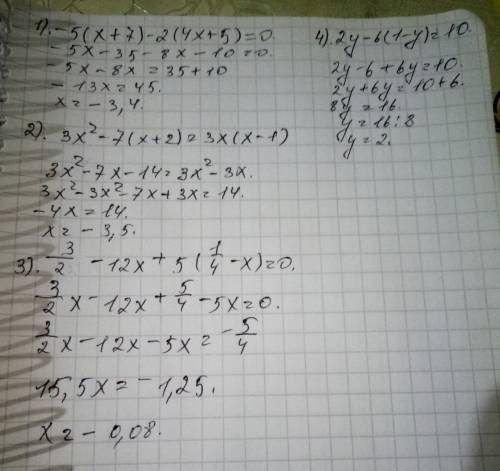 1). -5(x+7)-2(4x+5)=0
-5x-35-8x-10=0.
-5x-8x=35+10
-13x=45.
x=-3,4.
2). 3x²-7(x+2)=3x(x-1)
3x²-7x-14=3x²-3x.
3x²-3x²-7x+3x=14.
-4x=14.
x=-3,5.
3). 3/2 -12x+5(1/4-x)=0.
3/2x-12x+5/4-5x=0.
3/2x-12x-5x=-5/4
15,5x=-1,25.
x=-0,08.
4). 2y-6(1-y)=10.
2y-6+6y=10.
2y+6y=10+6.
8y=16.
y=16:8
y=2.